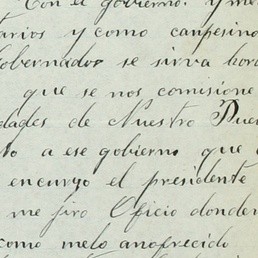 Con el gobierno. y me
tarios y como campesino
Gobernador se sirva hora
que se nos comisione
dades de Nuestro Pue
to a ese gobierno que
encuryo el presidente
me jiro Oficio donden
como melo anofrecido